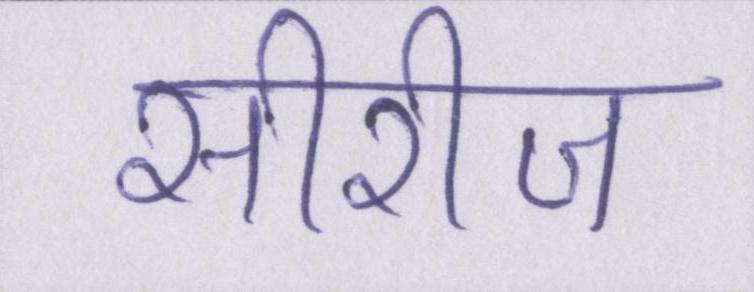 सीरीज